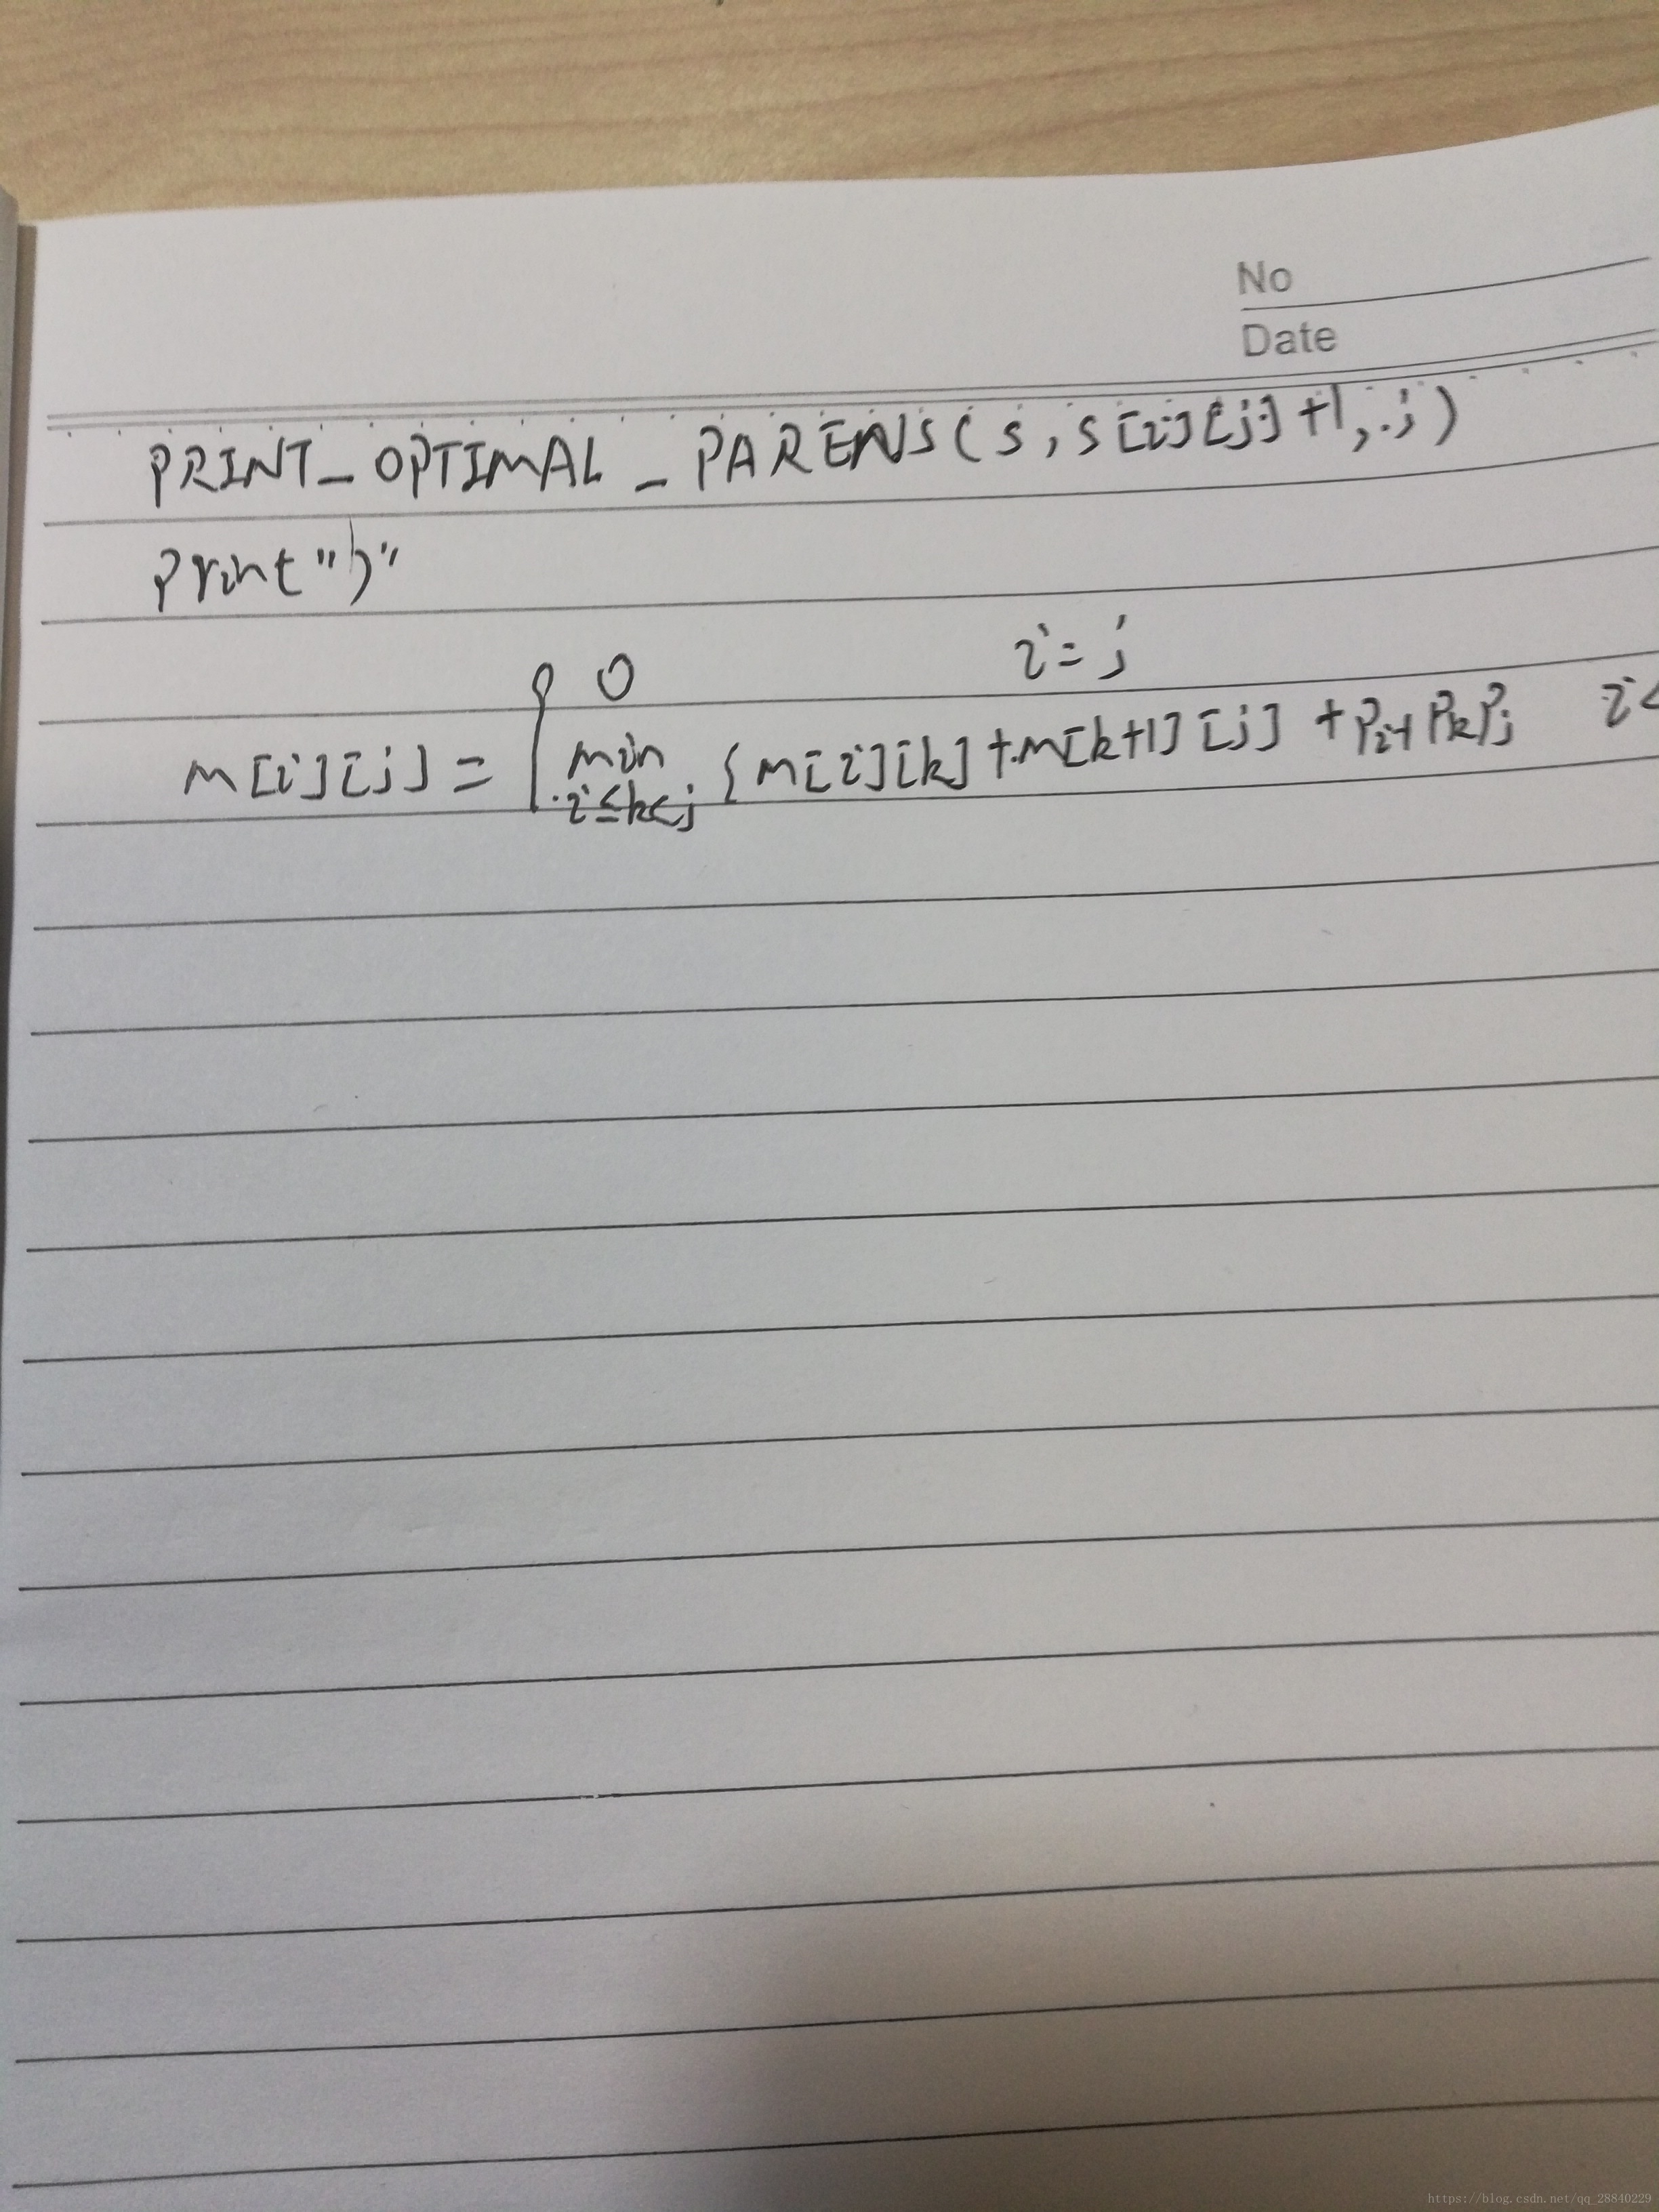 No
Date
PRINT_OPTIMAL_PARENS(s,s[i][j]+1,j)
print")"
0 i=j
m[i][j]={min {m[i][k]+m[k+1][j]+Pi-1PkPj i<
i≤k<j
https://blog.csdn.net/qq_28840229